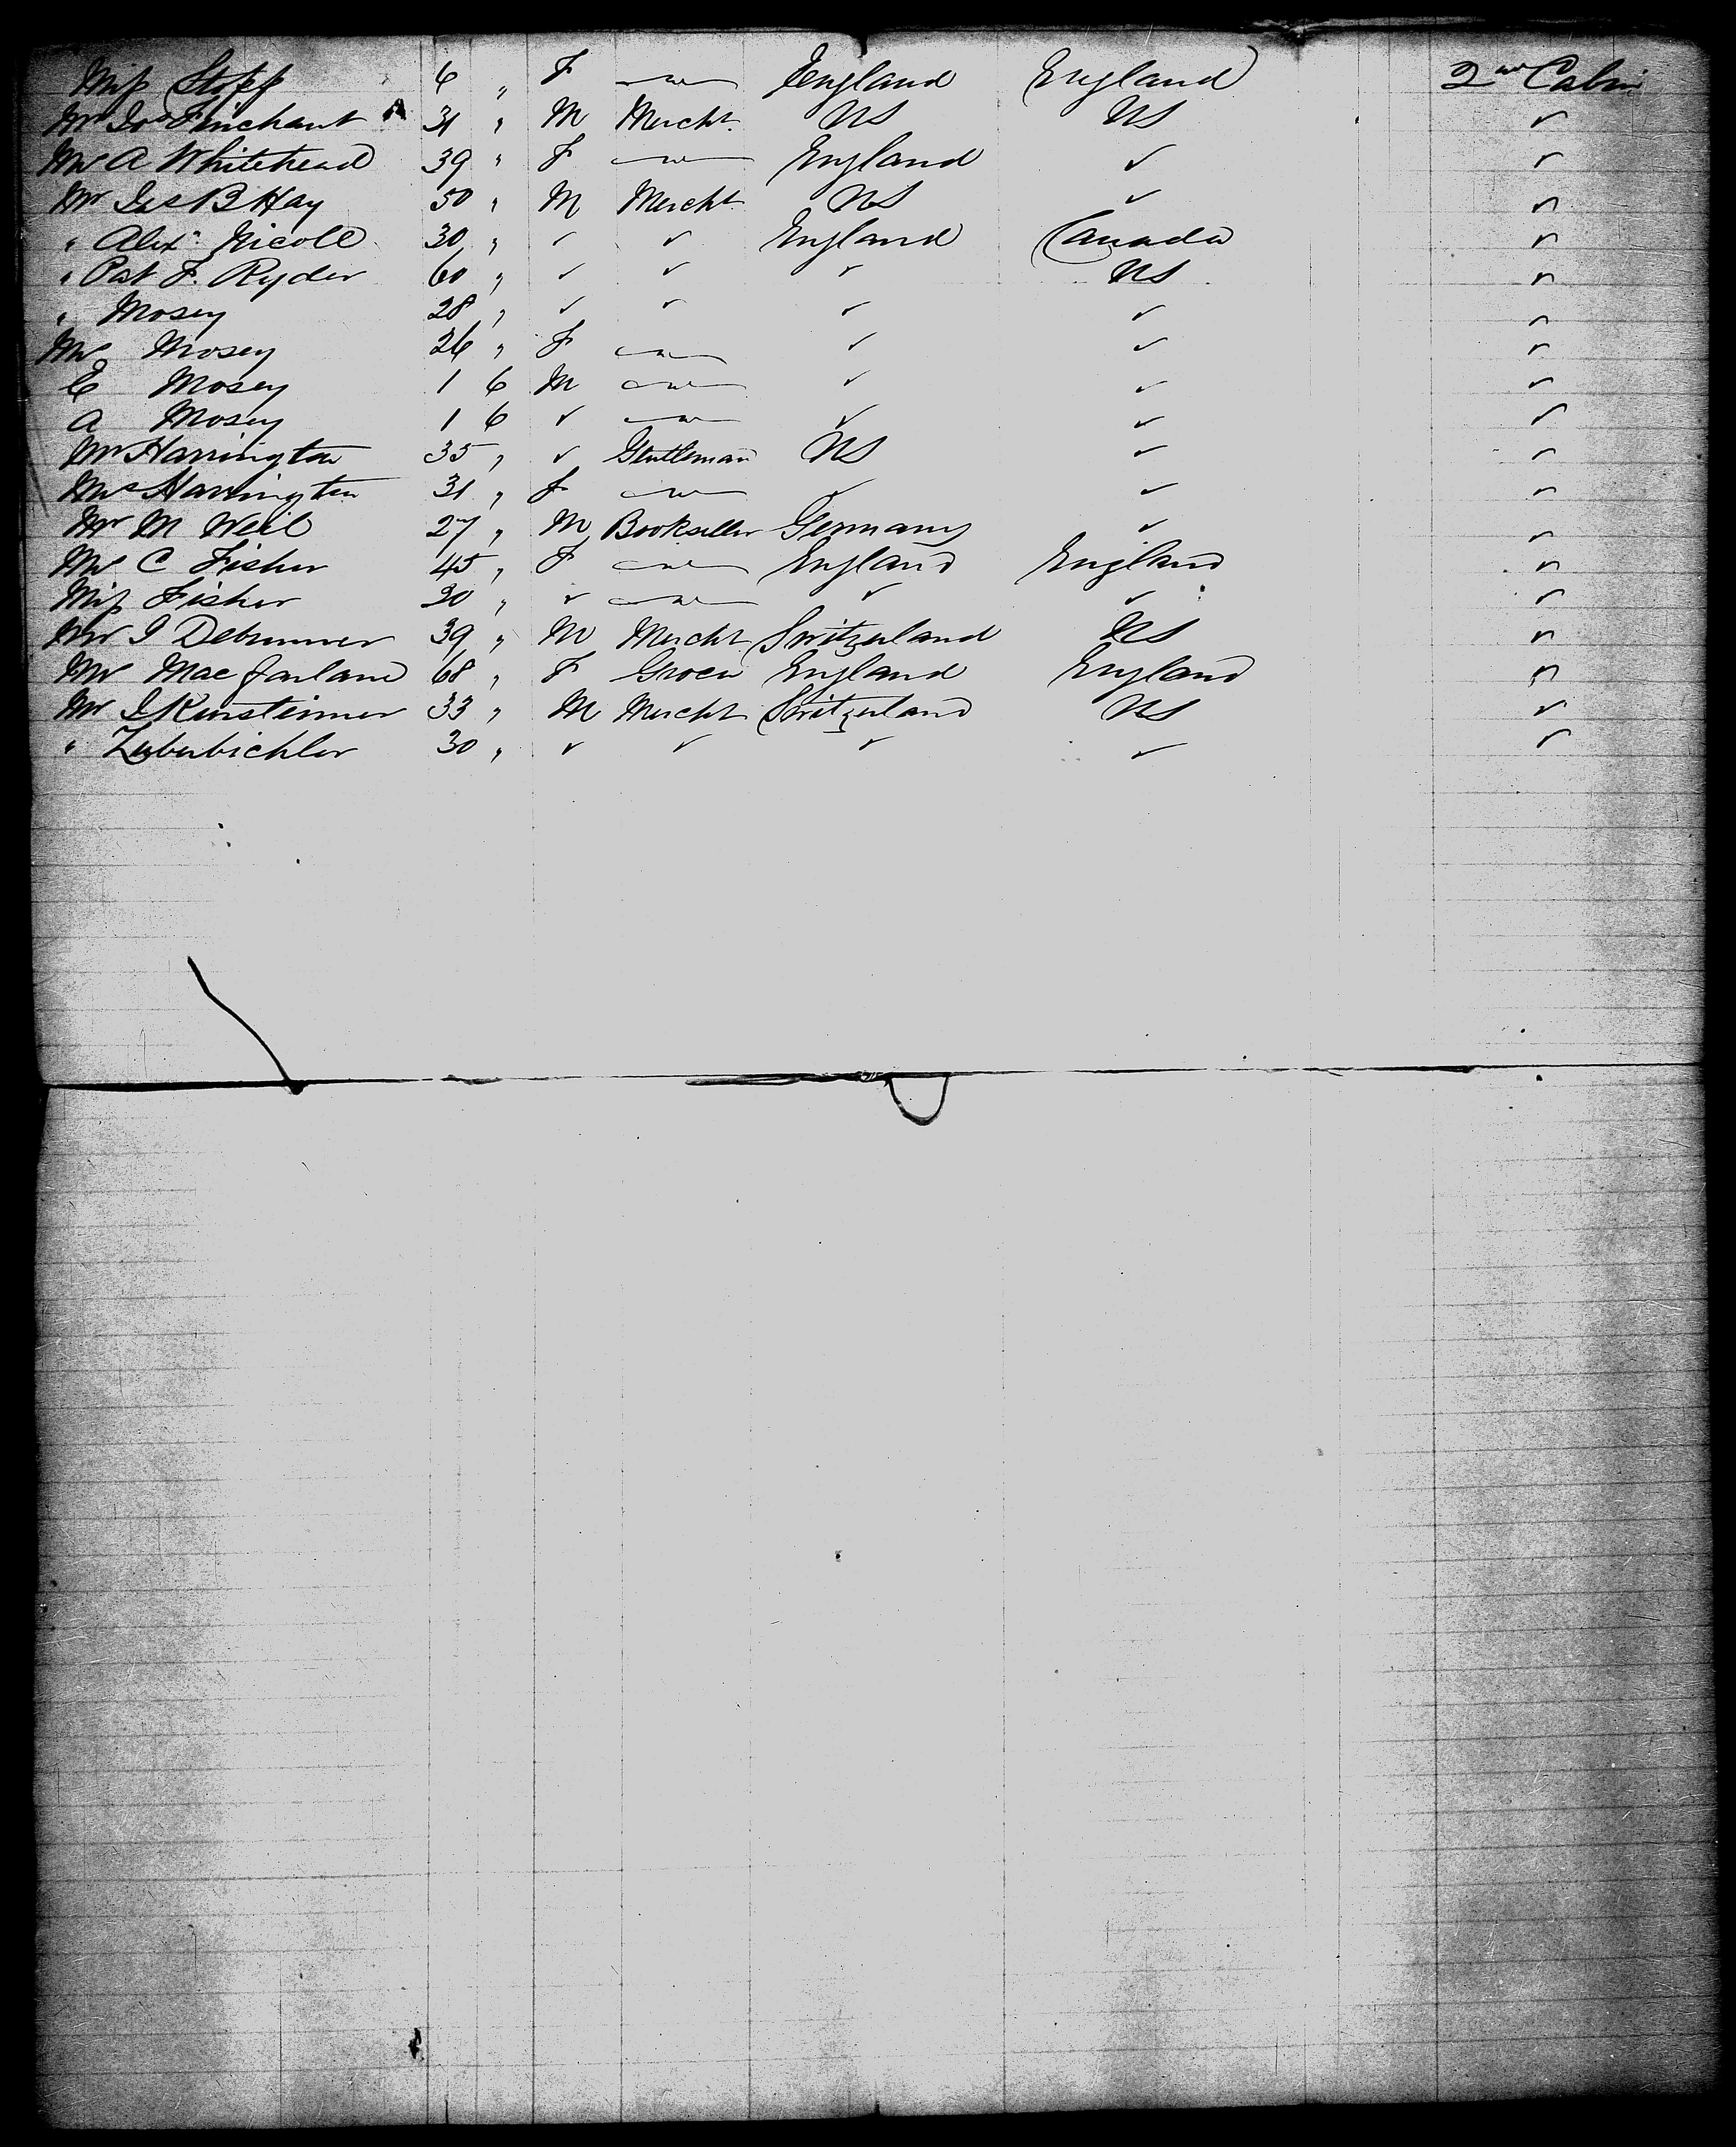 Miss Stopp 6 " F — England England 2nd Cabin
Mr Jo Finchant 31 " M Mercht. US US ✓
Mrs A Whitehead 39 " F — England ✓ ✓
Mr Jas B Hay 50 " M Mercht US ✓ ✓
" Alex Nicoll 30 " ✓ ✓ England Canada ✓
" Pat F. Ryder 60 " ✓ ✓ ✓ US ✓
" Mosey 28 " ✓ ✓ ✓ ✓ ✓
Mrs Mosey 26 " F — ✓ ✓ ✓
E Mosey 1 6 M — ✓ ✓ ✓
A Mosey 1 6 ✓ — ✓ ✓ ✓
Mr Harrington 35 " ✓ Gentleman US ✓ ✓
Mrs Harrington 31 " F — ✓ ✓ ✓
Mr M Weil 27 " M Bookseller Germany ✓ ✓
Mrs C Fisher 45 " F — England England ✓
Miss Fisher 30 " ✓ — ✓ ✓ ✓
Mr I Debrunner 39 " M Mercht Switzerland US ✓
Mrs Macfarlane 68 " F Grocer England England ✓
Mr I Kirsteiner 33 " M Mercht Switzerland US ✓
" Zuberbichler 30 " ✓ ✓ ✓ ✓ ✓